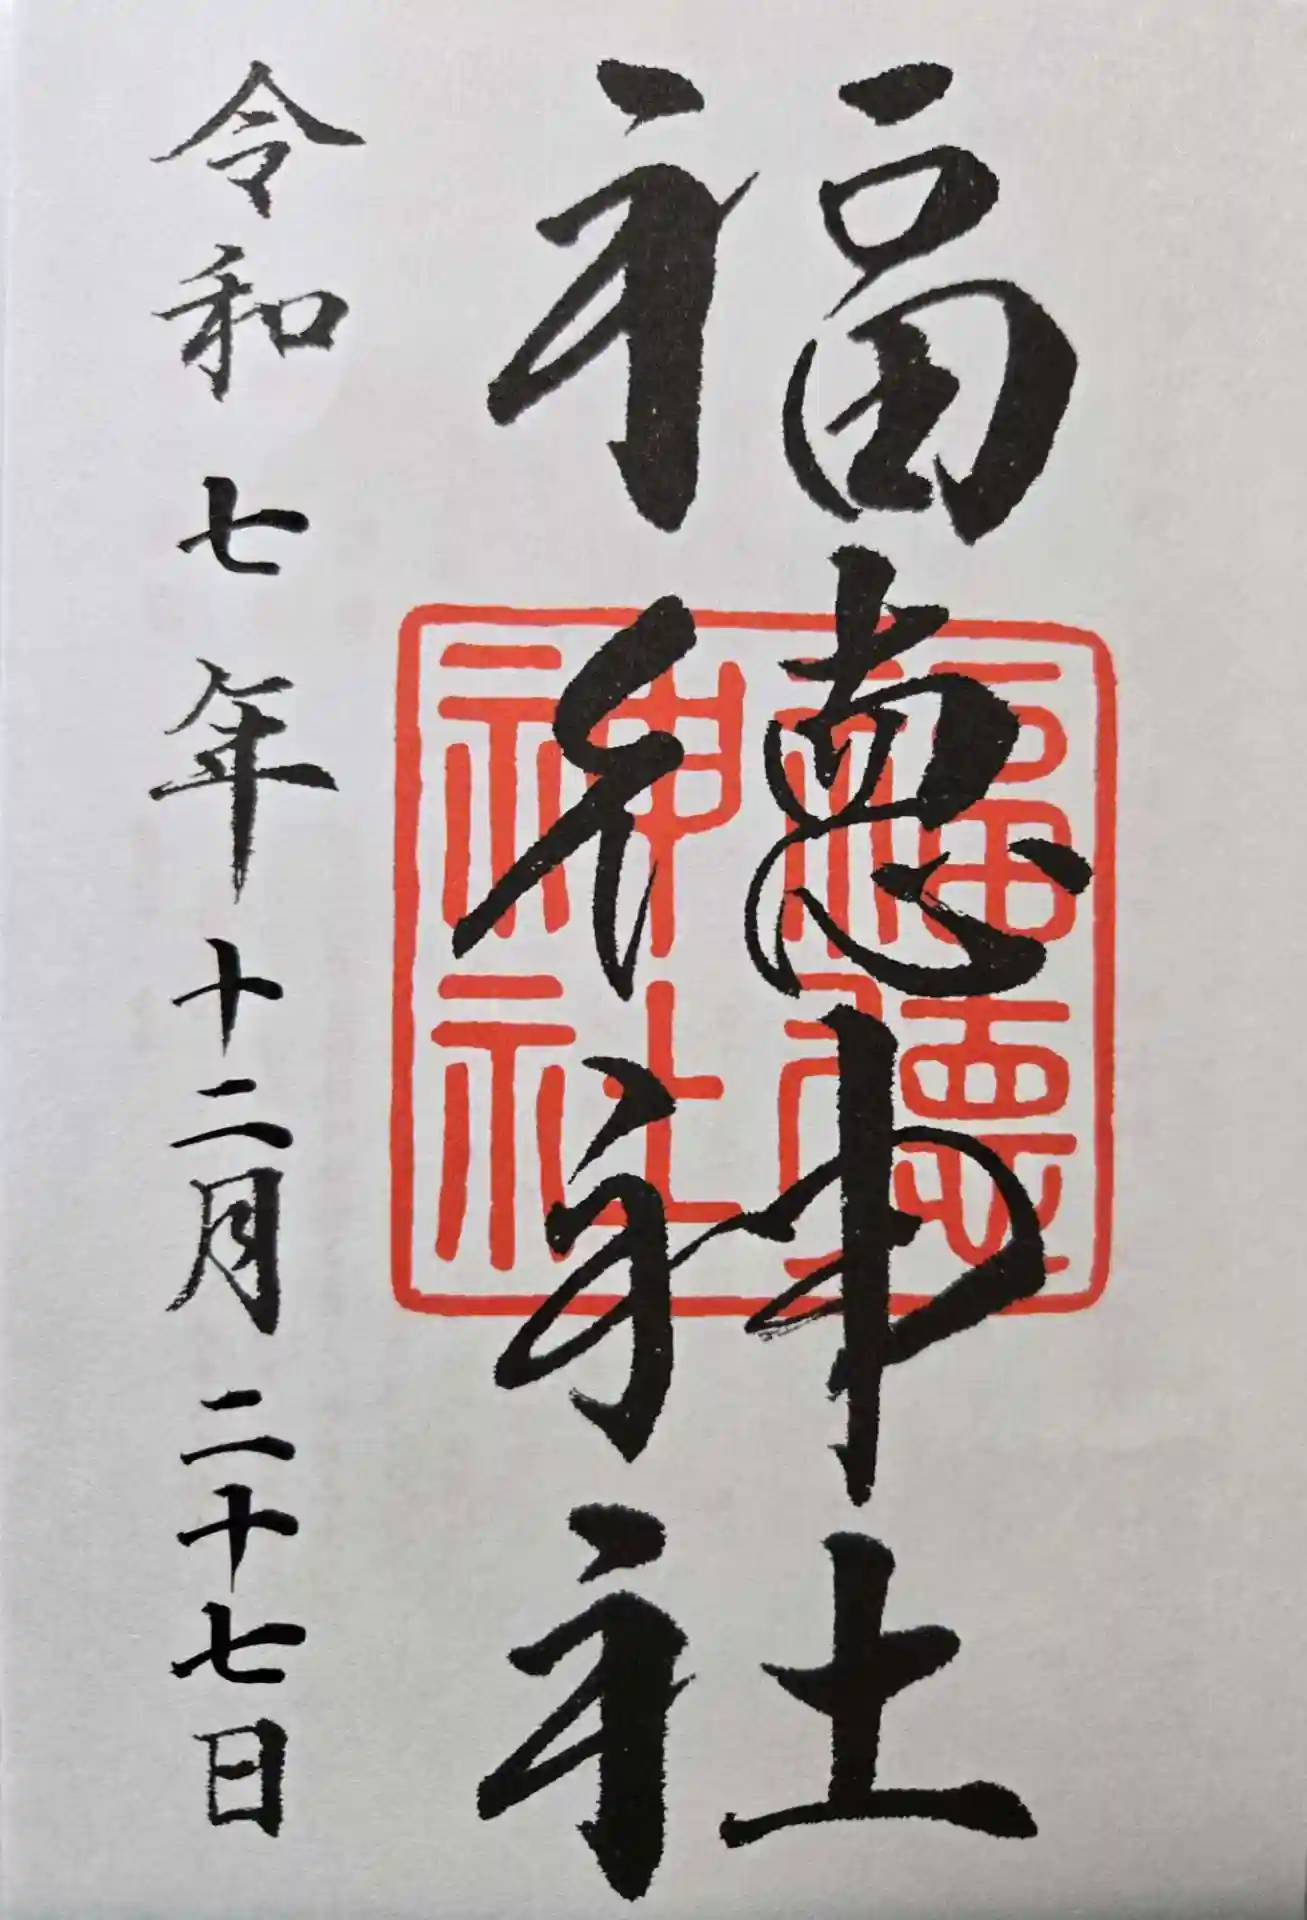 福徳神社
福徳
神社
令和七年十二月二十七日